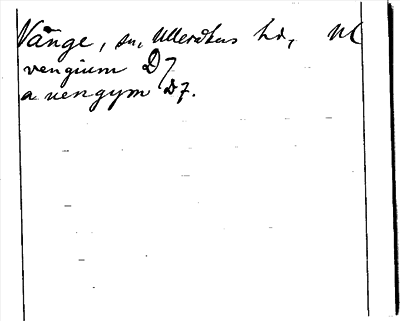 Vänge, sn, Ulleråkers hd, Ul
vengium D7
a uengym D7.